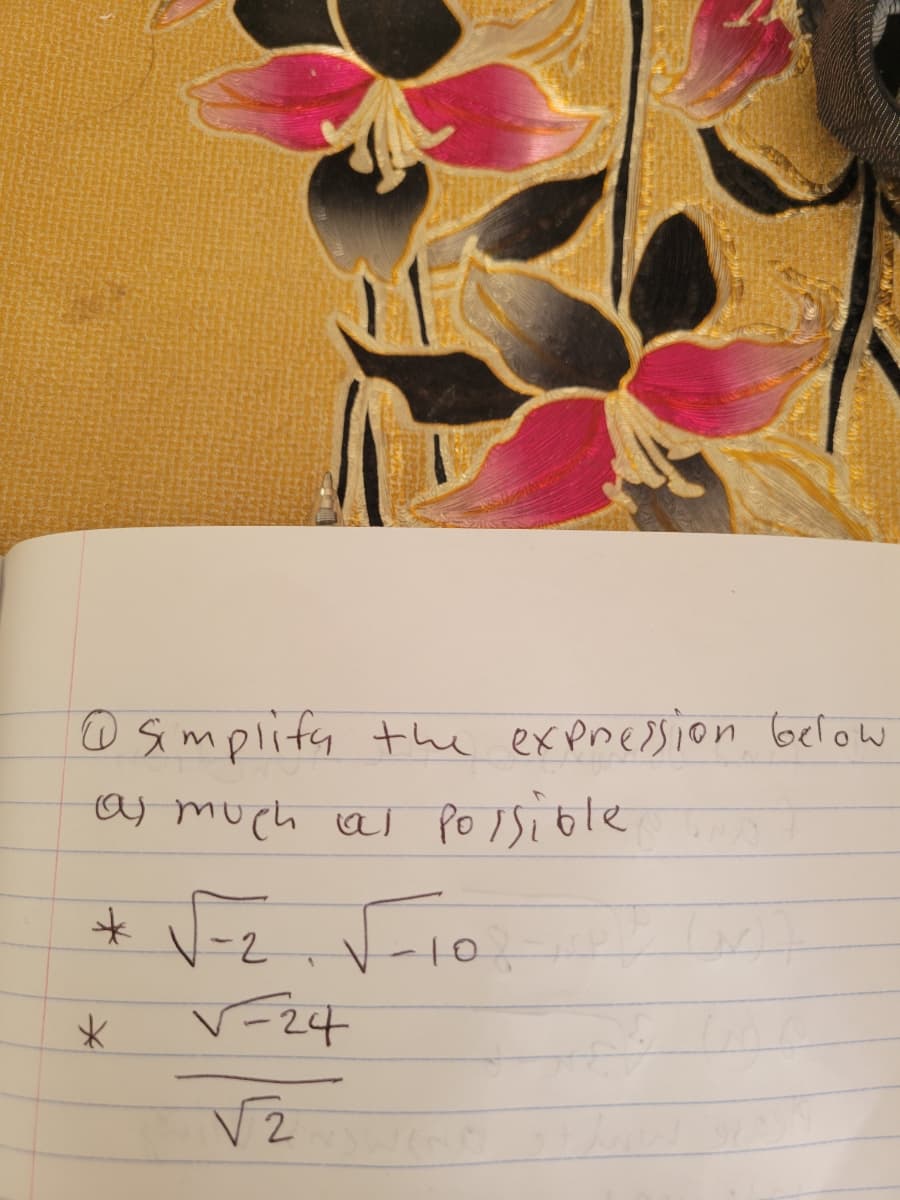 ① Simplify the expression below
as much as possible
* √-2 . √-10
* √-24
√2